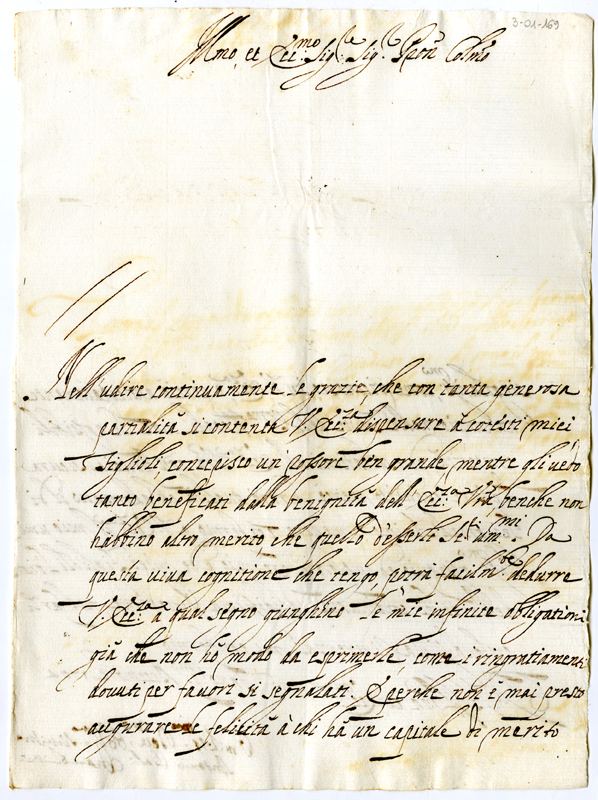 3-01-169
Ill.mo et Ecc.mo Sig.re Sig.r Pron Colmo
Nell'udire continuamente le grazie, che con tanta generosa
partialità si contenta V. Ecc.za dispensare à cotesti miei
figlioli, concepisco un rossore ben grande, mentre gli vedo
tanto beneficati dalla benignità dell'Ecc.za Vra, benche non
habbino altro merito, che quello d'esserle Se.ri um.mi. Da
questa viva cognitione che tengo, potrà facilm.te dedurre
V. Ecc.za à qual segno giunghino le mie infinite obligationi
già che non hò modo da esprimerle come i ringratiamenti
dovuti per favori si segnalati. E perche non è mai presto
augurare le felicità à chi hà un capitale di merito